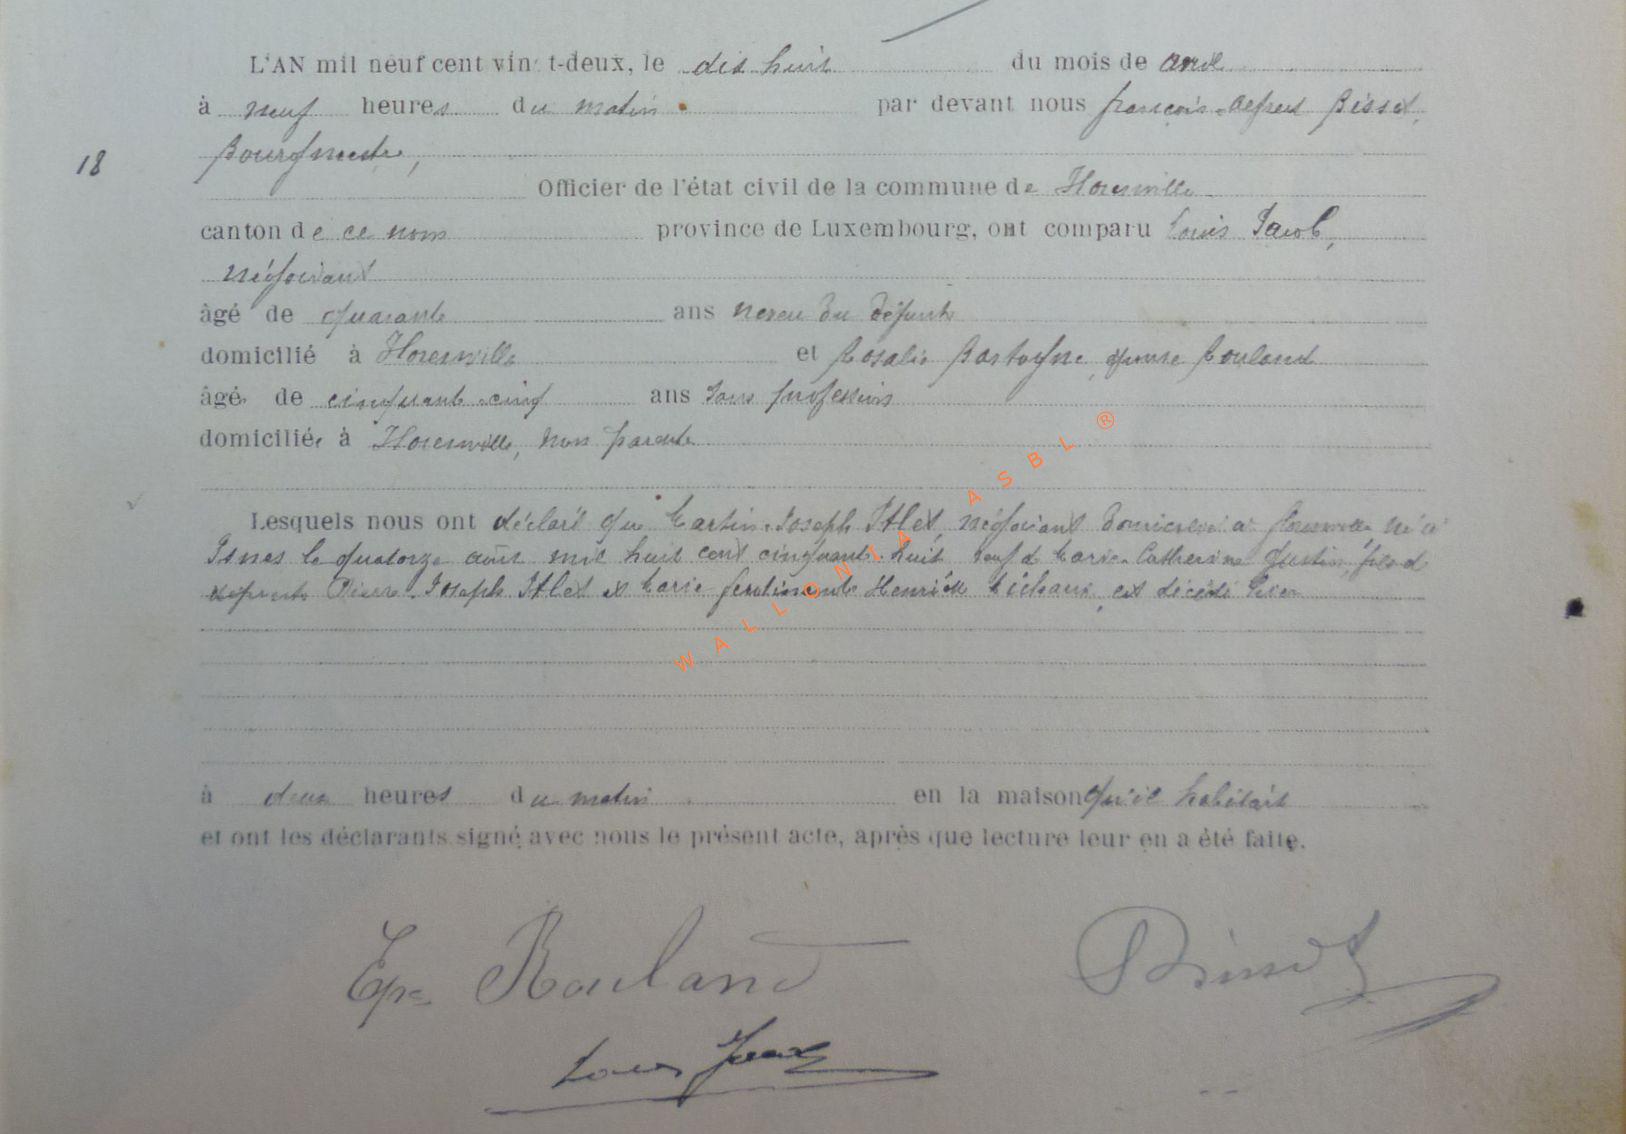 L'AN mil neuf cent vingt-deux, le dix huit du mois de avril
à neuf heures du matin par devant nous françois-Alfred Bissot,
Bourgmestre,
18
Officier de l'état civil de la commune de Florenville
canton de ce nom province de Luxembourg, ont comparu Louis Jacob,
négociant
âgé de quarante ans neveu du défunt
domicilié à Florenville et Rosalie Bastogne, épouse Rouland
âgée de cinquante-cinq ans sans profession
domiciliée à Florenville, non parente
Lesquels nous ont déclaré que Martin-Joseph négociant domicilié à florenville, né à
le quatorze août mil huit cent cinquante-huit veuf de Marie-Catherine fils de
défunts Pierre-Joseph et Marie ferdinande Henriette est décédé hier
à deux heures du matin en la maison qu'il habitait
et ont les déclarants signé avec nous le présent acte, après que lecture leur en a été faite.
Epse Rouland Bissot
Louis Jacob
WALLONIA ASBL ®